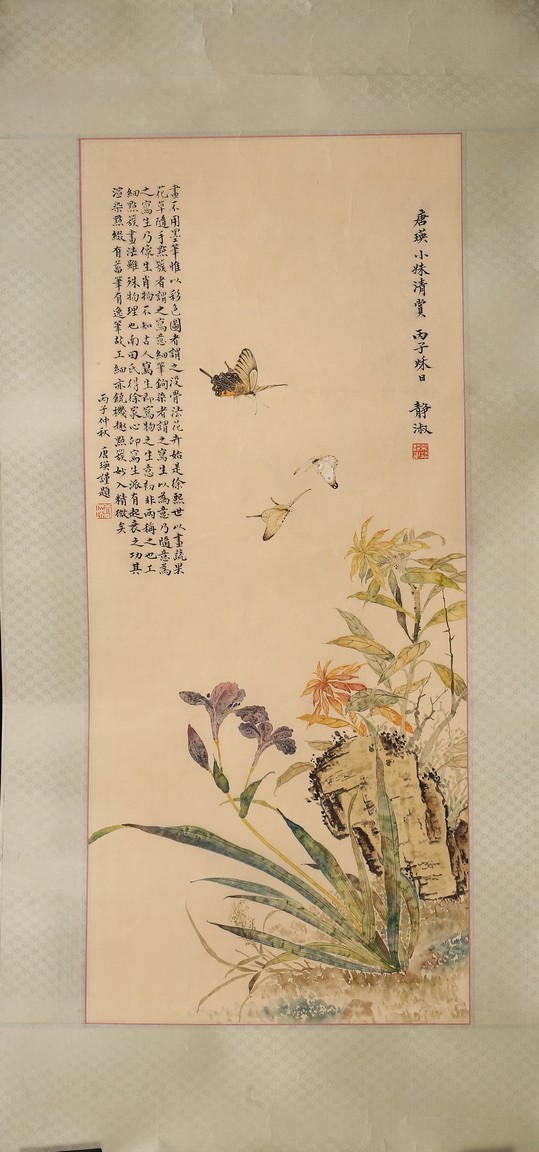 唐瑛小妹清赏 丙子妹日 静淑
畫不用墨筆惟以彩色圖者謂之没骨法花卉始是徐熙世以畫蔬果
花草隨手點簇者謂之寫意細筆鉤染者謂之寫生以為意乃隨意為
之寫生乃像生肖物不知古人寫生即寫物之生意初非兩稱之也工
細點簇畫法雖殊物理也南田氏得徐家心印寫生派有起衰之功其
渲染點綴有蓄筆有逸筆故工細亦饒機趣點簇妙入精微矣
丙子仲秋 唐瑛謹題